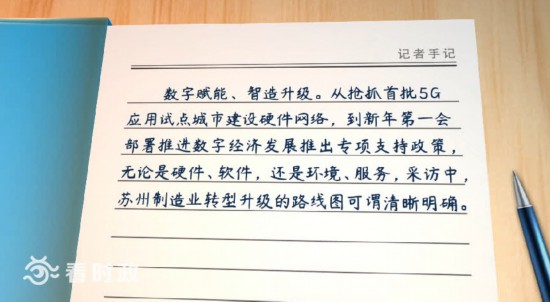 记者手记
数字赋能、智造升级。从抢抓首批5G
应用试点城市建设硬件网络，到新年第一会
部署推进数字经济发展推出专项支持政策，
无论是硬件、软件，还是环境、服务，采访中，
苏州制造业转型升级的路线图可谓清晰明确。
看时政